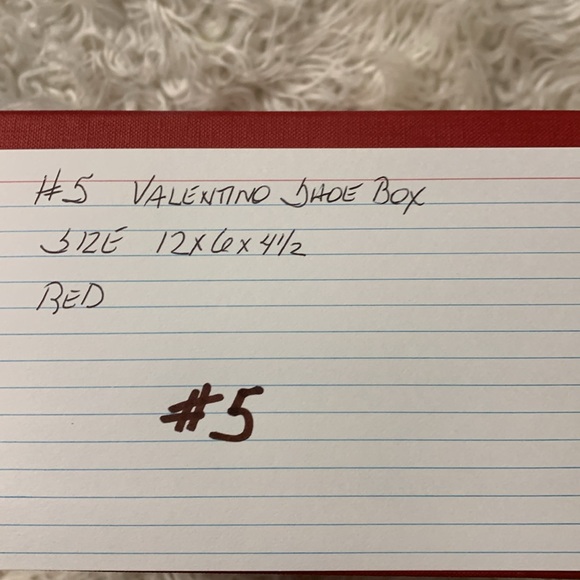 #5 VALENTINO SHOE BOX
SIZE 12x6x4½
RED
#5